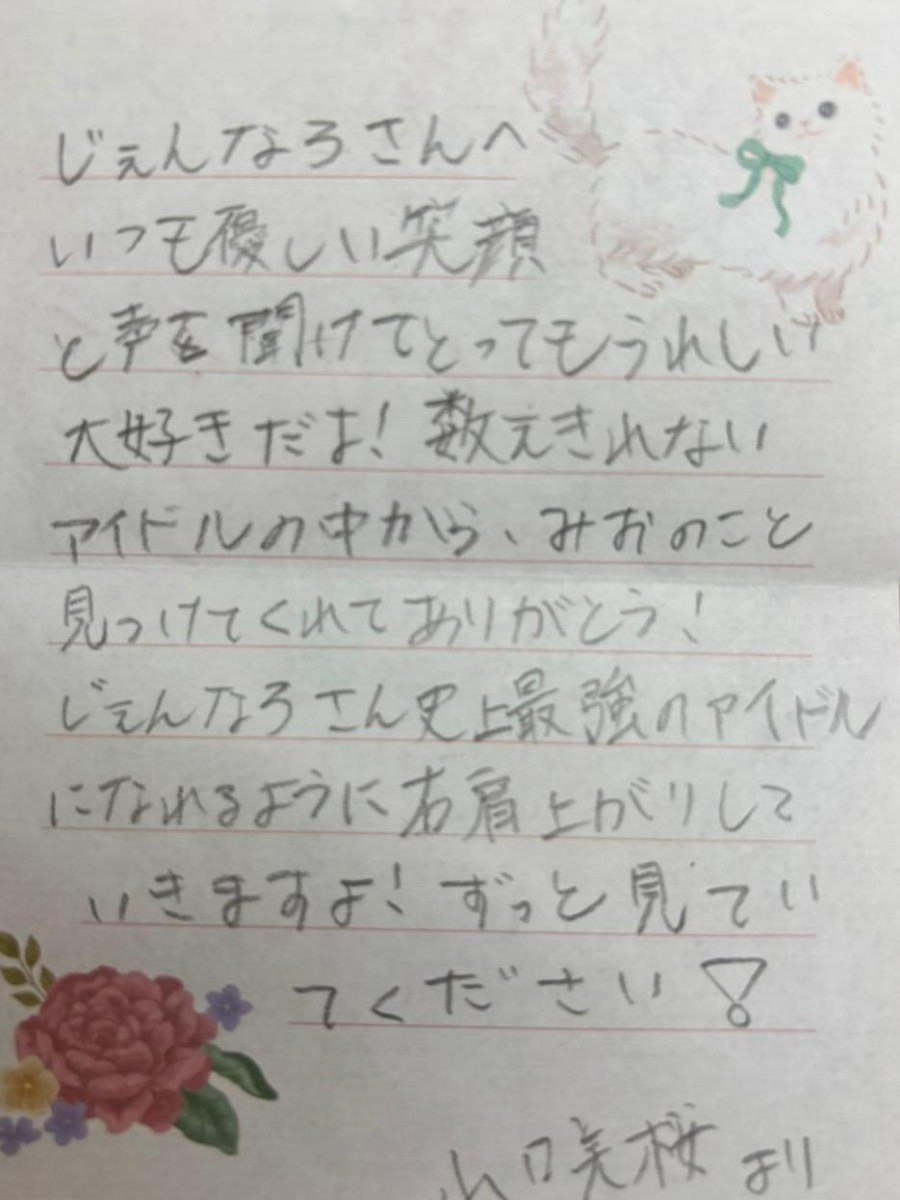 じぇんなろさんへ
いつも優しい笑顔
と声を聞けてとってもうれしい
大好きだよ！数えきれない
アイドルの中から、みおのこと
見つけてくれてありがとう！
じぇんなろさん史上最強のアイドル
になれるように右肩上がりして
いきますよ！ずっと見てい
てください！
山口美桜より